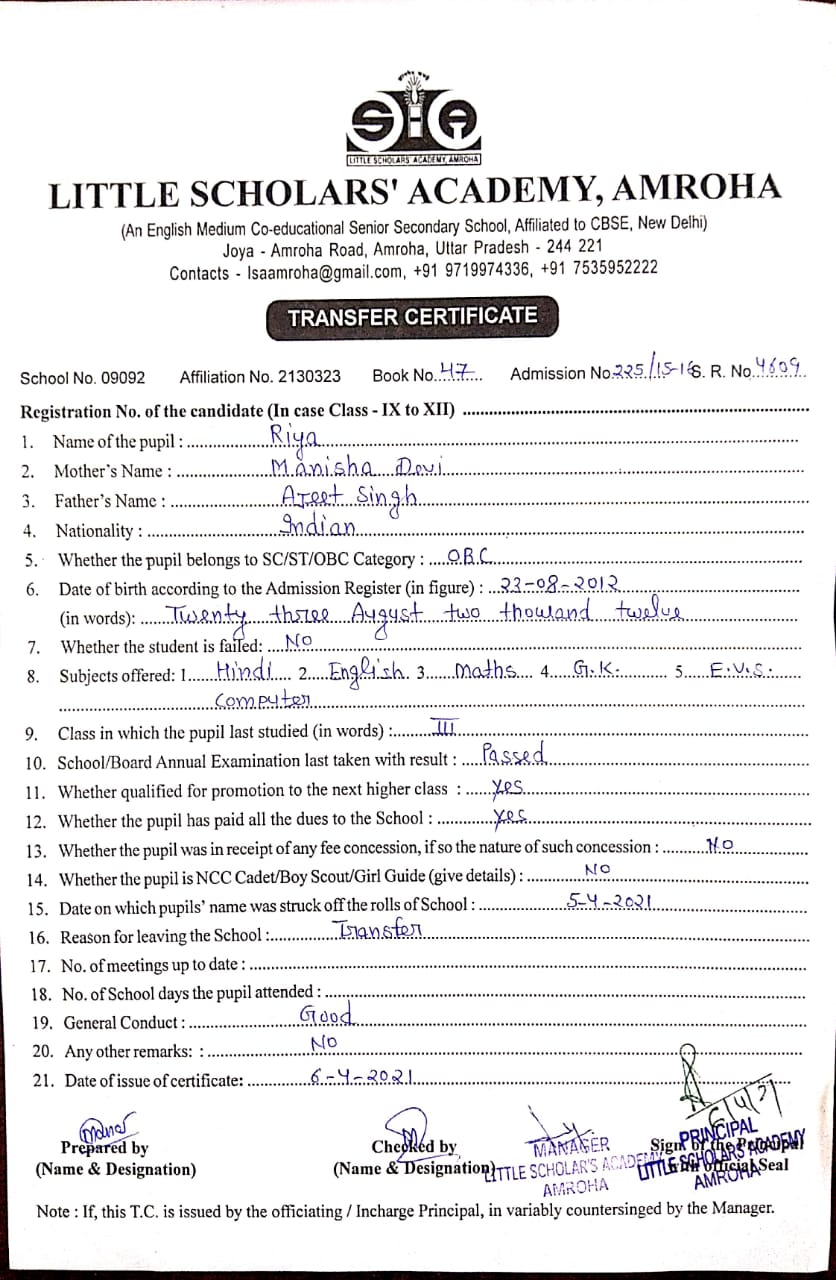 LITTLE SCHOLARS' ACADEMY, AMROHA
LITTLE SCHOLARS' ACADEMY, AMROHA
(An English Medium Co-educational Senior Secondary School, Affiliated to CBSE, New Delhi)
Joya - Amroha Road, Amroha, Uttar Pradesh - 244 221
Contacts - lsaamroha@gmail.com, +91 9719974336, +91 7535952222
TRANSFER CERTIFICATE
School No. 09092 Affiliation No. 2130323 Book No. 47 Admission No. 225/15-16 S. R. No. 4609
Registration No. of the candidate (In case Class - IX to XII)
1. Name of the pupil : Riya
2. Mother's Name : Manisha Devi
3. Father's Name : Ajeet Singh
4. Nationality : Indian
5. Whether the pupil belongs to SC/ST/OBC Category : O.B.C
6. Date of birth according to the Admission Register (in figure) : 23-08-2012
(in words): Twenty three August two thousand twelve
7. Whether the student is failed: No
8. Subjects offered: 1 Hindi 2 English 3 Maths 4 G.K. 5 E.V.S.
Computer
9. Class in which the pupil last studied (in words) : III
10. School/Board Annual Examination last taken with result : Passed
11. Whether qualified for promotion to the next higher class : Yes
12. Whether the pupil has paid all the dues to the School : Yes
13. Whether the pupil was in receipt of any fee concession, if so the nature of such concession : No
14. Whether the pupil is NCC Cadet/Boy Scout/Girl Guide (give details) : No
15. Date on which pupils' name was struck off the rolls of School : 5-4-2021
16. Reason for leaving the School : Transfer
17. No. of meetings up to date :
18. No. of School days the pupil attended :
19. General Conduct : Good
20. Any other remarks: : No
21. Date of issue of certificate: 6-4-2021
6/4/21
Prepared by Checked by MANAGER Sign of the Principal PRINCIPAL
(Name & Designation) (Name & Designation) LITTLE SCHOLAR'S ACADEMY official Seal LITTLE SCHOLARS ACADEMY
AMROHA AMROHA
Note : If, this T.C. is issued by the officiating / Incharge Principal, in variably countersinged by the Manager.